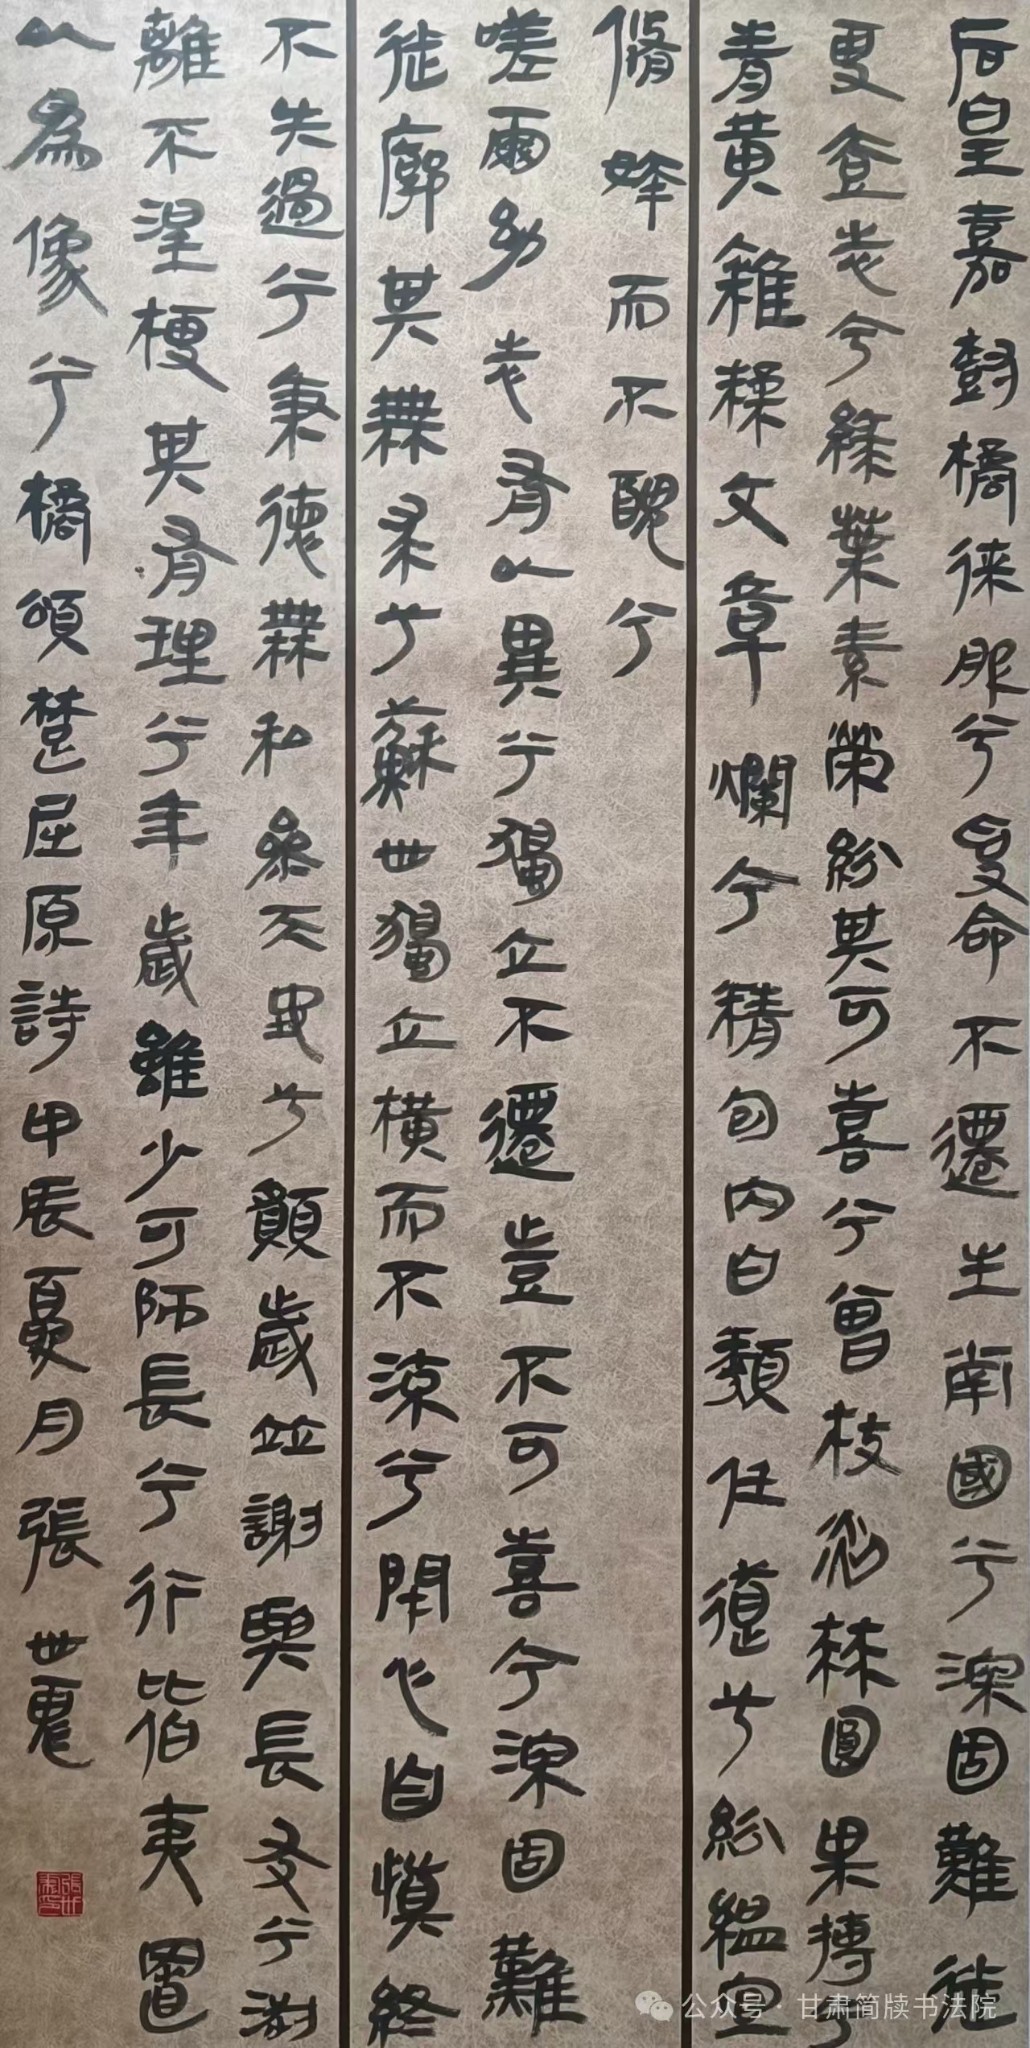 后皇嘉樹橘徠服兮受命不遷生南國兮深固難徙
更壹志兮綠葉素榮紛其可喜兮曾枝剡棘圓果摶兮
青黃雜糅文章爛兮精色內白類任道兮紛縕宜
脩姱而不醜兮
嗟爾幼志有以異兮獨立不遷豈不可喜兮深固難
徙廓其無求兮蘇世獨立橫而不流兮閉心自慎終
不失過兮秉德無私參天地兮願歲並謝與長友兮淑
離不淫梗其有理兮年歲雖少可師長兮行比伯夷置
以為像兮橘頌楚屈原詩甲辰夏月張世
公众号·甘肃简牍书法院